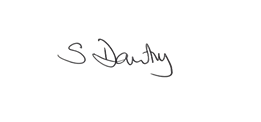 S Dawtry